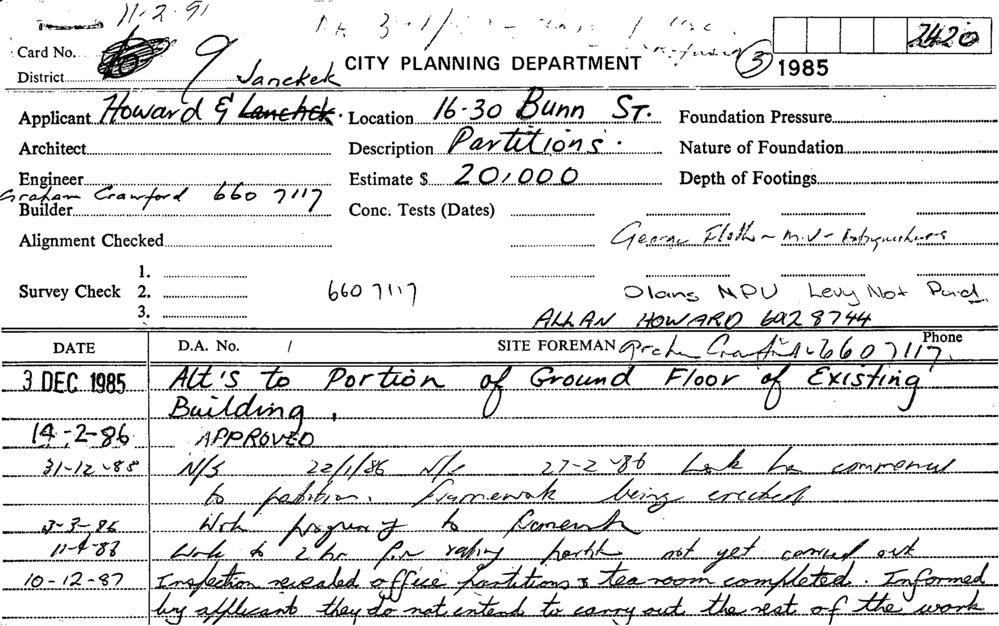 11-2-91
2420
Card No.
9
CITY PLANNING DEPARTMENT
3
1985
District
Janckek
Applicant Howard & Lanchck. Location 16-30 Bunn St. Foundation Pressure
Architect Description Partitions. Nature of Foundation
Engineer Estimate $ 20,000 Depth of Footings
Graham Crawford 660 7117
Builder Conc. Tests (Dates)
Alignment Checked
George Floth - M.V - Extinguishers
1.
Survey Check 2. 660 7117 Plans NPU Levy Not Paid
3.
ALLAN HOWARD 692 8744
DATE D.A. No. / SITE FOREMAN Graham Crawford - 660 7117. Phone
3 DEC 1985 Alt's to Portion of Ground Floor of Existing
Building.
14-2-86 APPROVED
31-12-85 N/S 22/1/86 N/S 27-2-86 Work has commenced
to partition. Framework being erected
3-3-86 Work progressing to framework
11-4-86 Work to 2 hr fire rating not yet carried out
10-12-87 Inspection revealed office partitions & tea room completed. Informed
by applicant they do not intend to carry out the rest of the work